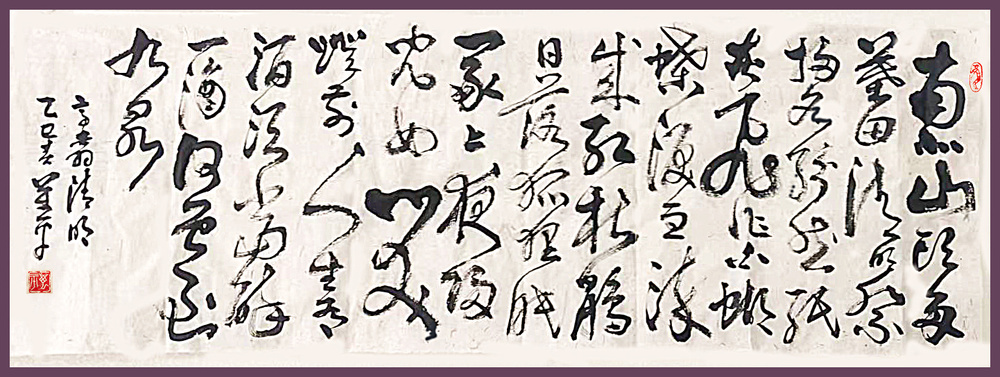 南北山頭多
墓田清明祭
掃各紛然紙
灰飛作白蝴
蝶淚血染
成红杜鹃
日落狐狸眠
冢上夜歸
兒女笑
燈前人生有
酒須當醉
一滴何曾到
九泉
高翥清明
乙巳春